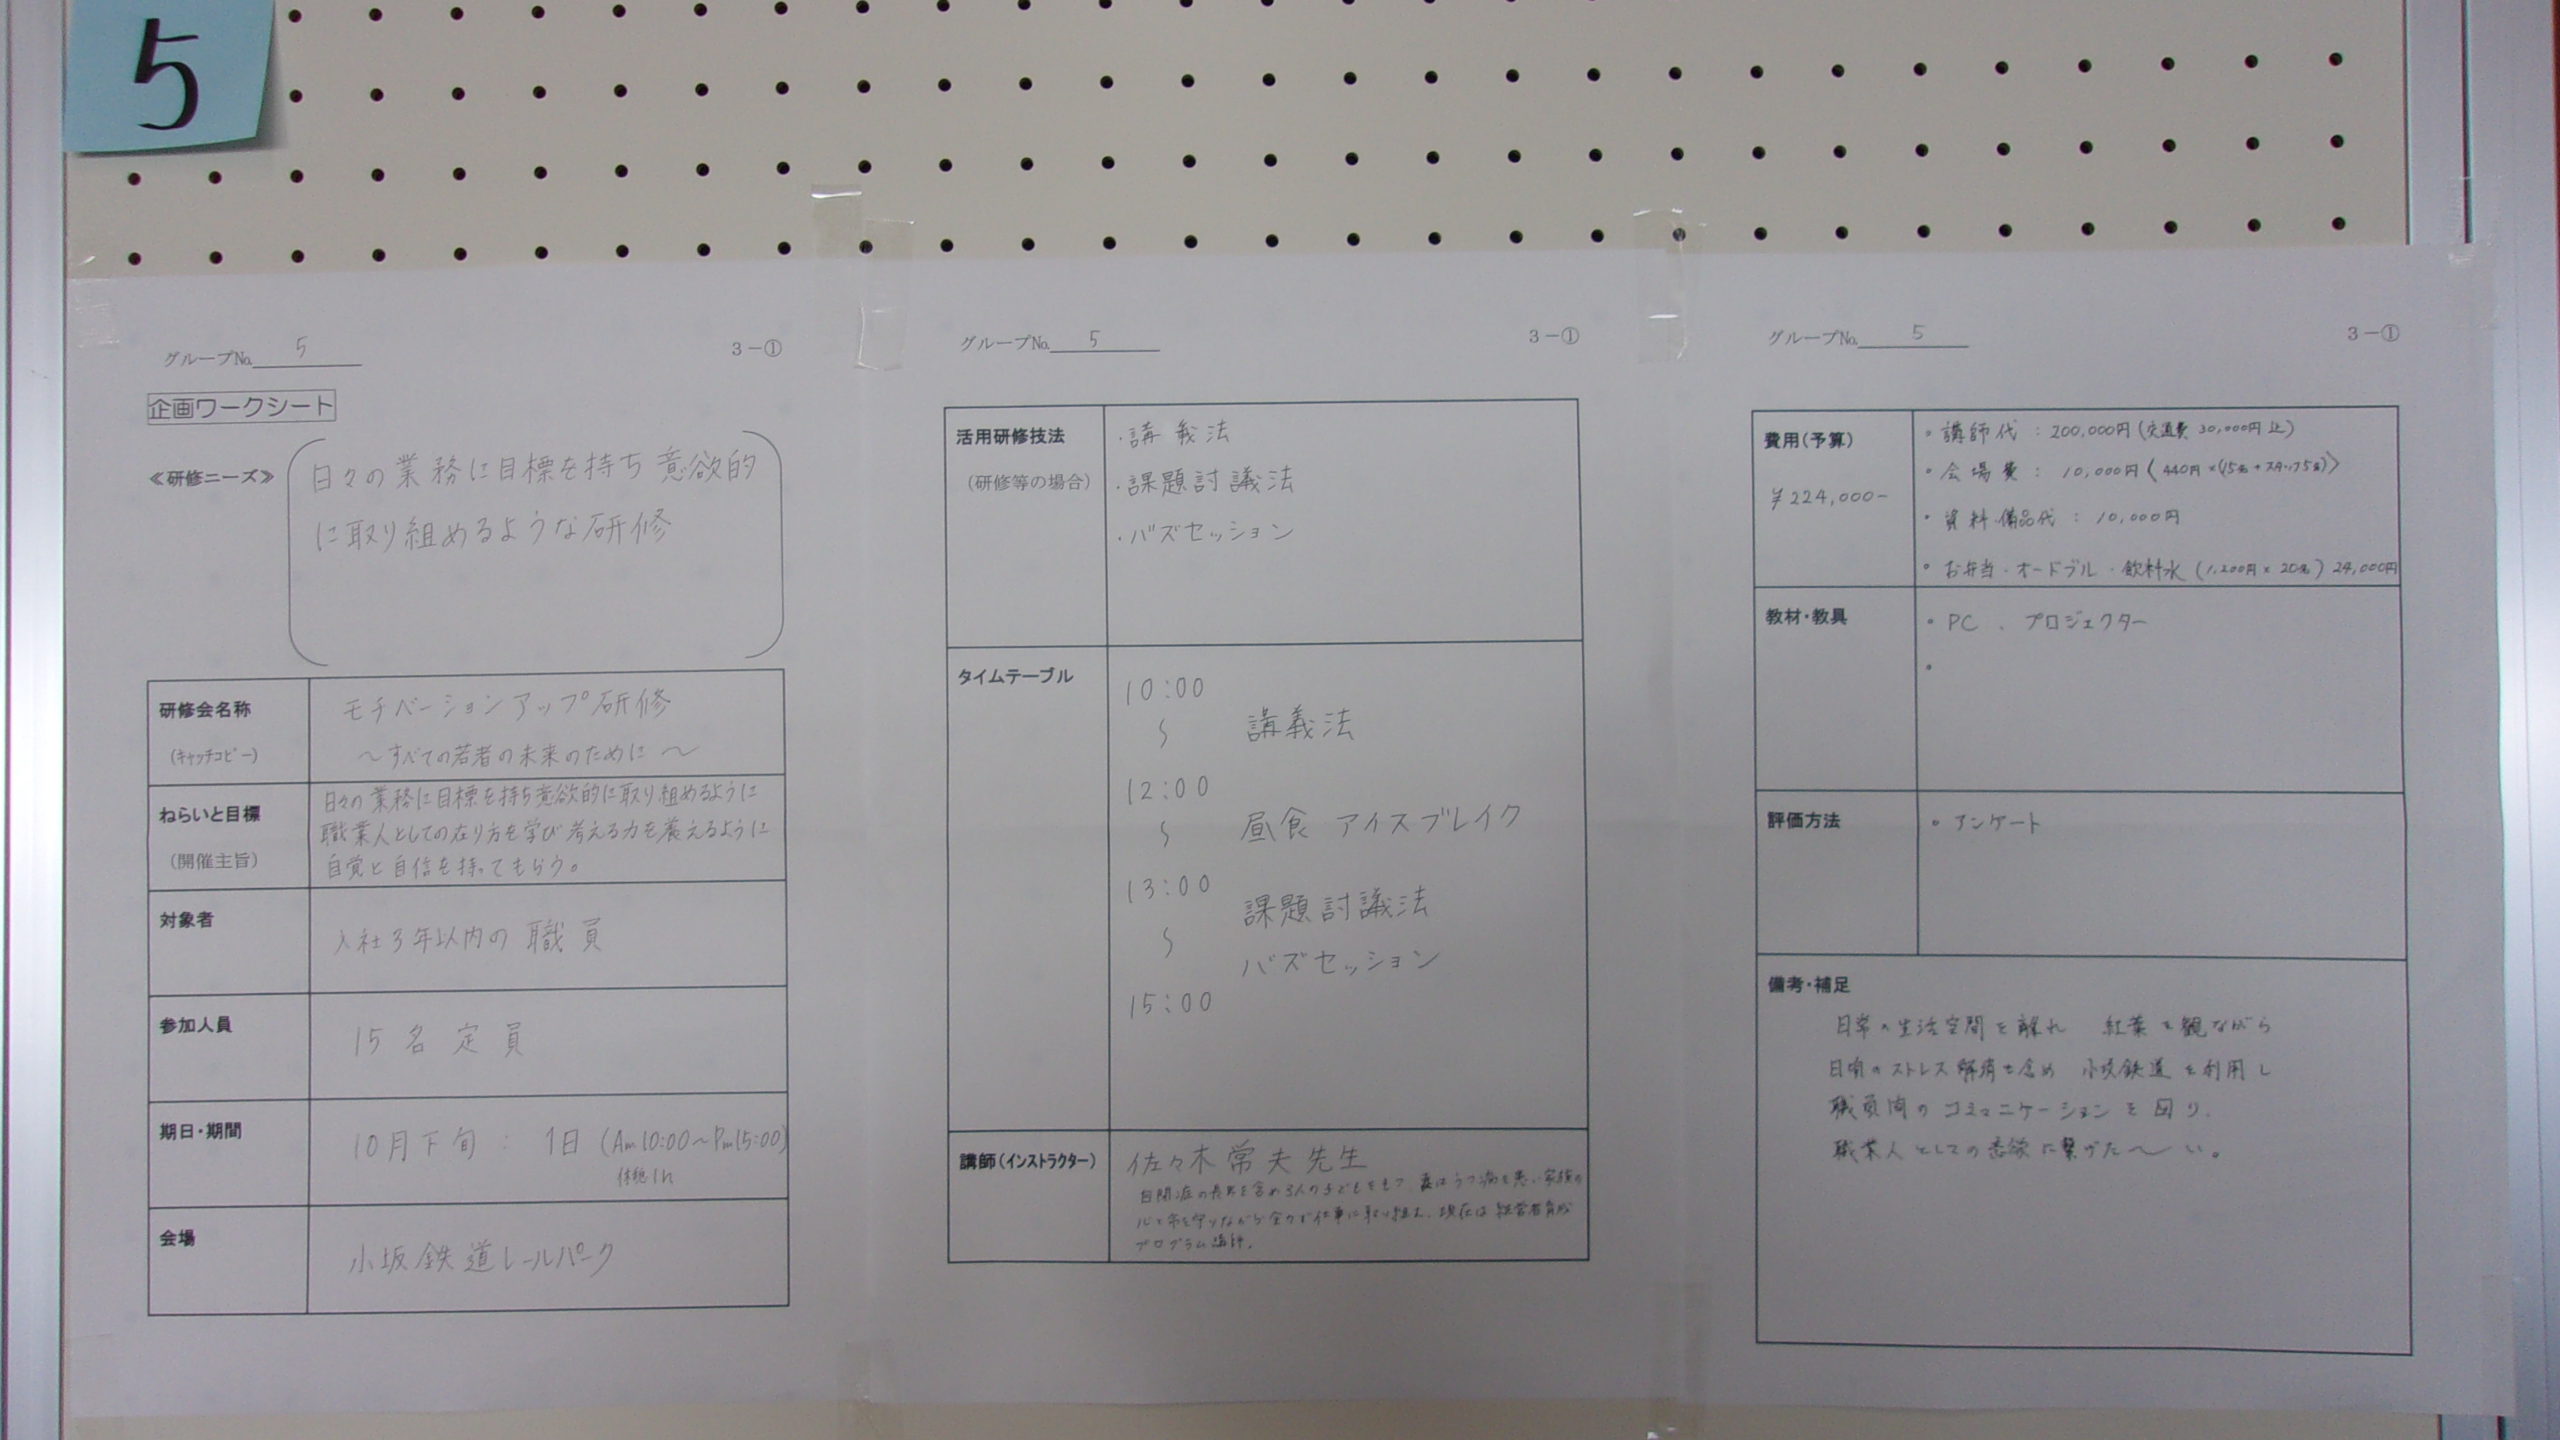 5
グループNo. 5
3-①
企画ワークシート
≪研修ニーズ≫
日々の業務に目標を持ち意欲的
に取り組めるような研修
研修会名称
(キャッチコピー)
モチベーションアップ研修
～すべての若者の未来のために～
ねらいと目標
(開催主旨)
日々の業務に目標を持ち意欲的に取り組めるように
職業人としての在り方を学び考える力を養えるように
自覚と自信を持ってもらう。
対象者
入社3年以内の職員
参加人員
15名定員
期日・期間
10月下旬 : 1日 (Am10:00～Pm15:00)
休憩1h
会場
小坂鉄道レールパーク
グループNo. 5
3-①
活用研修技法
(研修等の場合)
・講義法
・課題討議法
・バズセッション
タイムテーブル
10:00
～ 講義法
12:00
～ 昼食 アイスブレイク
13:00
課題討議法
～
バズセッション
15:00
講師(インストラクター)
佐々木常夫先生
自閉症の長男を含め3人の子どもをもつ 妻はうつ病を患い家族の
心と命を守りながら全力で仕事に取り組む、現在は経営者育成
プログラム講師。
グループNo. 5
3-①
費用(予算)
¥224,000-
・講師代 : 200,000円(交通費 30,000円込)
・会場費 : 10,000円〈440円×(15名+スタッフ5名)〉
・資料・備品代 : 10,000円
・お弁当・オードブル・飲料水 (1,200円×20名) 24,000円
教材・教具
・PC、プロジェクター
・
評価方法
・アンケート
備考・補足
日常の生活空間を離れ 紅葉を観ながら
日頃のストレス解消も含め 小坂鉄道を利用し
職員間のコミュニケーションを図り、
職業人としての意欲に繋げた～い。